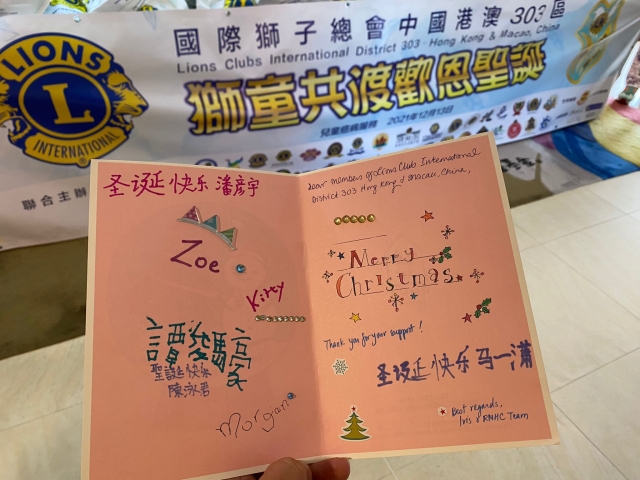 國際獅子總會中國港澳 303 區
Lions Clubs International District 303 - Hong Kong & Macao, China
LIONS
L
INTERNATIONAL
獅童共渡歡恩聖誕
2021年12月13日
兒童癌病服務
聯合主辦
圣诞快乐 潘彦宇
Zoe
Kitty
聖誕快樂
Morgan
Dear members of Lions Club International
District 303 Hong Kong & Macau, China,
Merry
Christmas
Thank you for your support!
圣诞快乐马一潇
Best regards,
Iris & RNHC Team